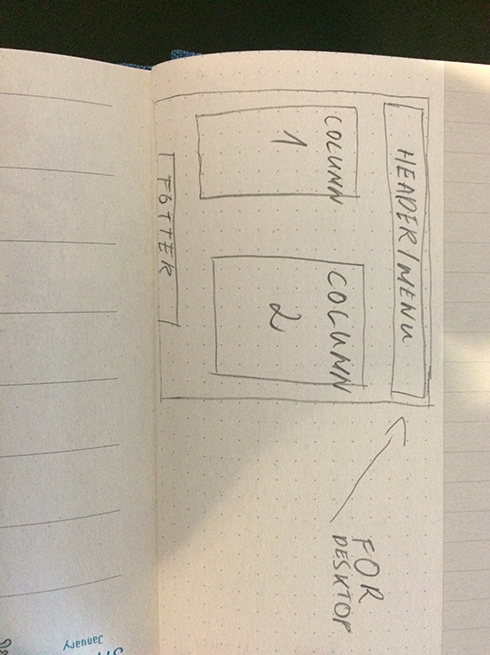 HEADER/MENU
COLUMN
1
COLUMN
2
FOTTER
FOR
DESKTOP
January